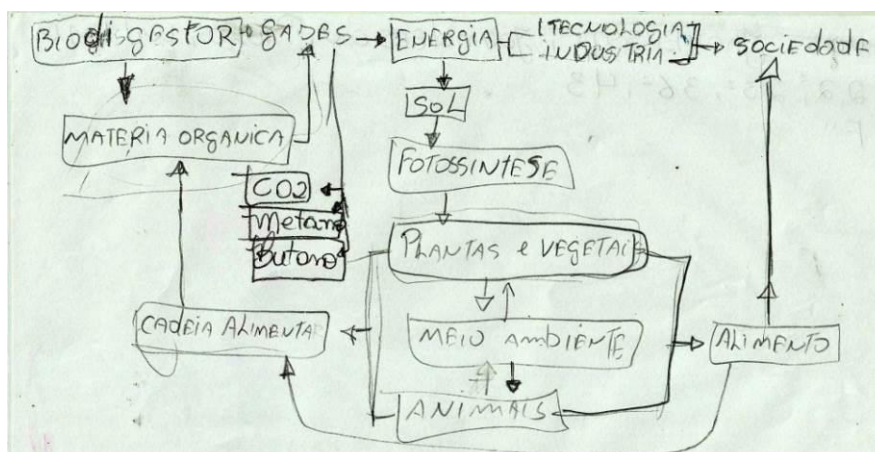 BIODIGESTOR GASES ENERGIA TECNOLOGIA INDUSTRIA SOCIEDADE
SOL
MATERIA ORGANICA
FOTOSSINTESE
CO2
Metano
Butano
PLANTAS e VEGETAIS
CADEIA ALIMENTAR
MEIO AMBIENTE
ALIMENTO
ANIMAIS